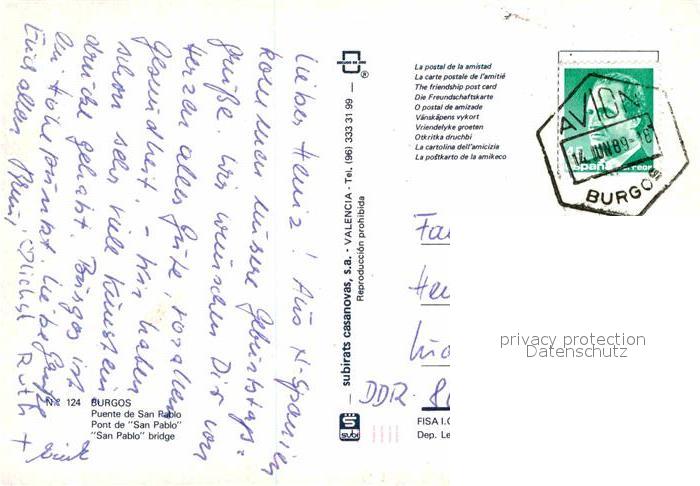 Lieber Heinz! Aus N-Spanien
kommen unsere Geburtstags-
grüße. Wir wünschen Dir von
Herzen alles Gute, vor allem
Gesundheit. - Wir haben
schon sehr viele Kunstein-
drücke gehabt. Burgos ist
ein Höhepunkt. Liebe Grüße
Euch allen Ruth +
Nº 124 BURGOS
Puente de San Pablo
Pont de "San Pablo"
"San Pablo" bridge
subirats casanovas, s.a. - VALENCIA - Tel. (96) 333 31 99 — ®
Reproducción prohibida
subi
La postal de la amistad
La carte postale de l'amitié
The friendship post card
Die Freundschaftskarte
O postal de amizade
Vänskåpens vykort
Vriendelyke groeten
Otkritka druchbi
La cartolina dell'amicizia
La poŝtkarto de la amikeco
AVION
14 JUN 89
BURGOS
España correos
Fa
He
DDR-
FISA I.G
Dep. Le
privacy protection
Datenschutz